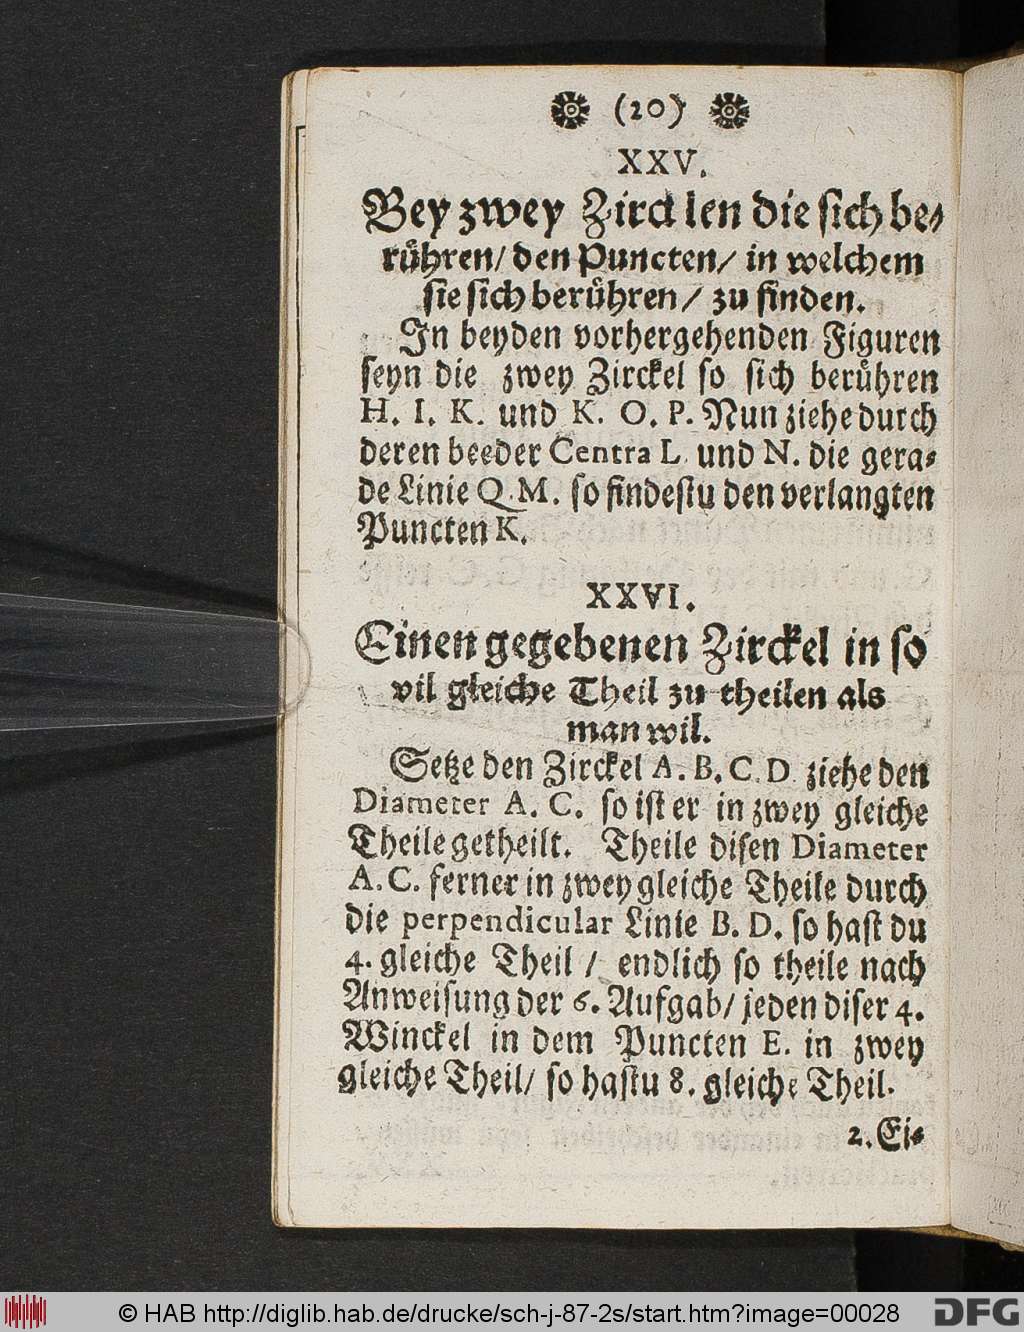 (20)
XXV.
Bey zwey Zircklen die sich be-
rühren/ den Puncten/ in welchem
sie sich berühren/ zu finden.
In beyden vorhergehenden Figuren
seyn die zwey Zirckel so sich berühren
H. I. K. und K. O. P. Nun ziehe durch
deren beeder Centra L. und N. die gera-
de Linie Q. M. so findestu den verlangten
Puncten K.
XXVI.
Einen gegebenen Zirckel in so
vil gleiche Theil zu theilen als
man wil.
Setze den Zirckel A. B. C. D. ziehe den
Diameter A. C. so ist er in zwey gleiche
Theile getheilt. Theile disen Diameter
A. C. ferner in zwey gleiche Theile durch
die perpendicular Linie B. D. so hast du
4. gleiche Theil / endlich so theile nach
Anweisung der 6. Aufgab/ jeden diser 4.
Winckel in dem Puncten E. in zwey
gleiche Theil/ so hastu 8. gleiche Theil.
2. Ei-
© HAB http://diglib.hab.de/drucke/sch-j-87-2s/start.htm?image=00028
DFG